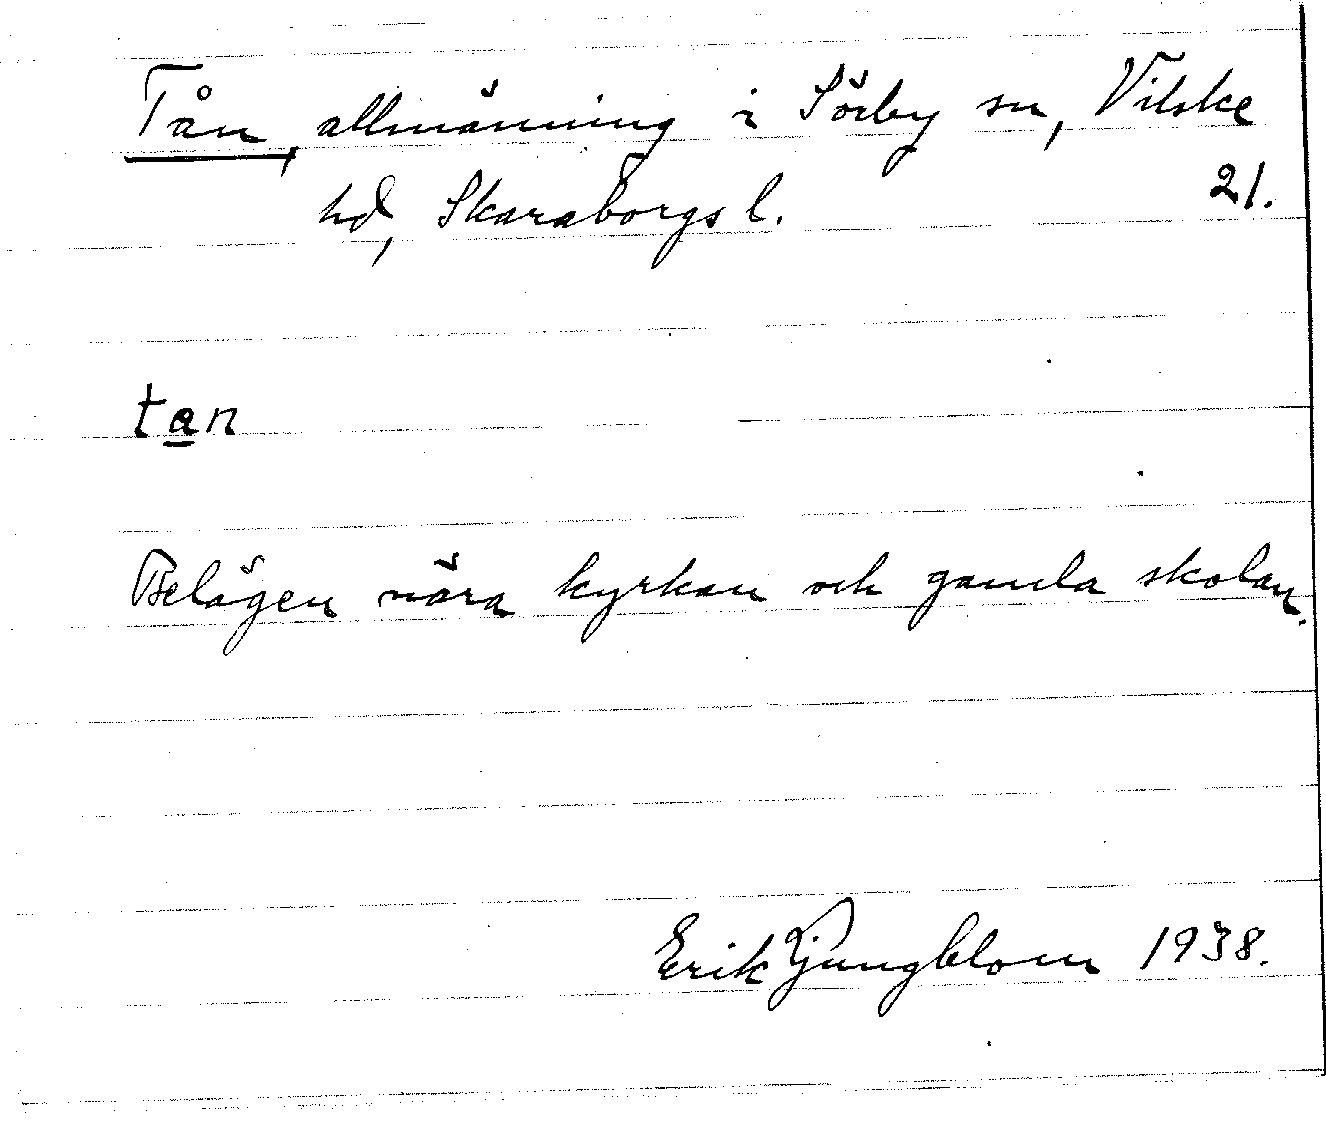 Tån, allmänning i Sörby sn, Vilske
hd, Skaraborgs l. 21.
tan
Belägen nära kyrkan och gamla skolan.
Erik Ljungblom 1938.